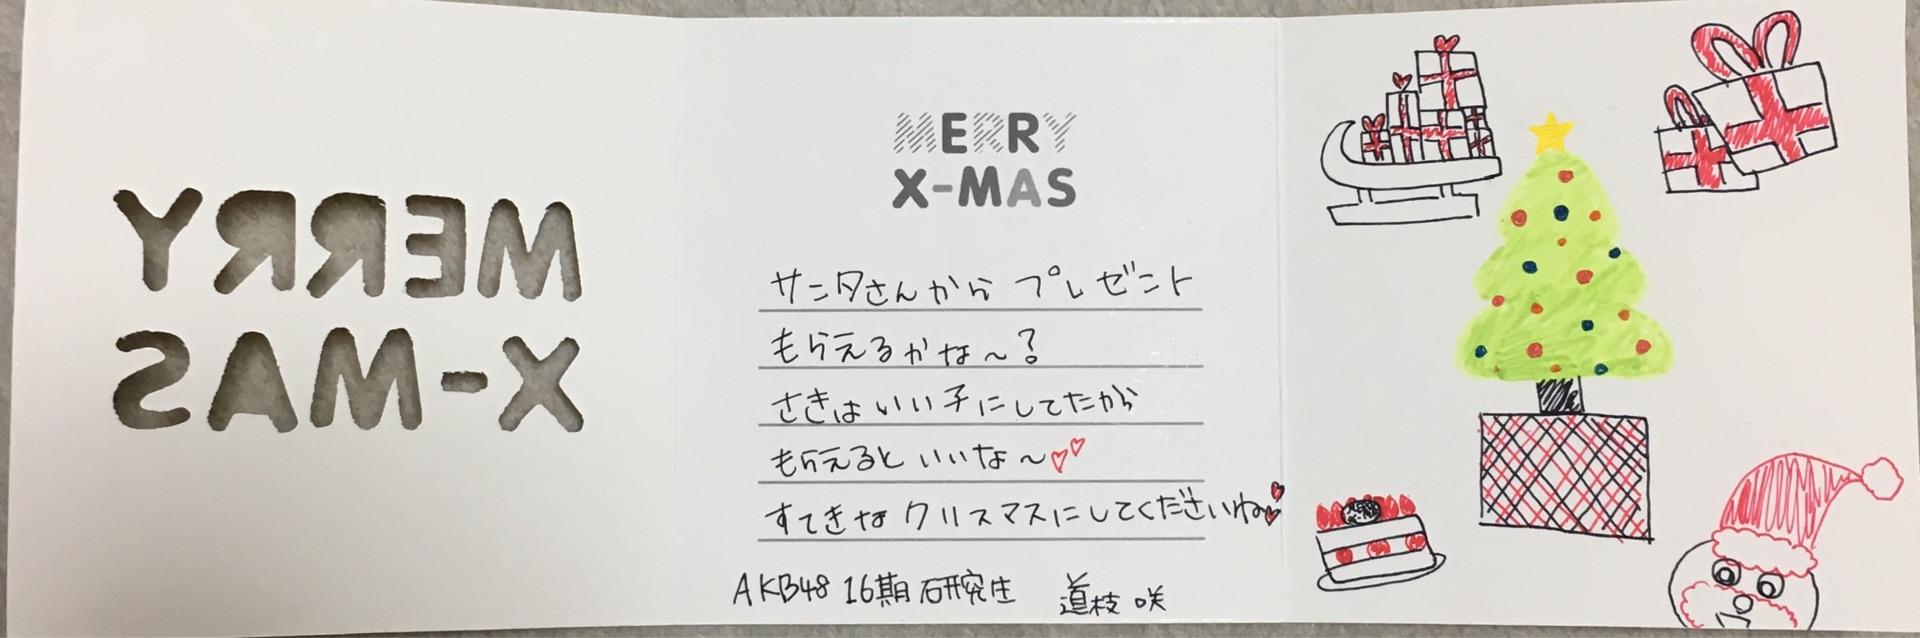 MERRY
X-MAS
MERRY
X-MAS
サンタさんから プレゼント
もらえるかな〜?
さきは いい子にしてたから
もらえると いいな〜
すてきな クリスマスにしてくださいね
AKB48 16期 研究生 道枝 咲